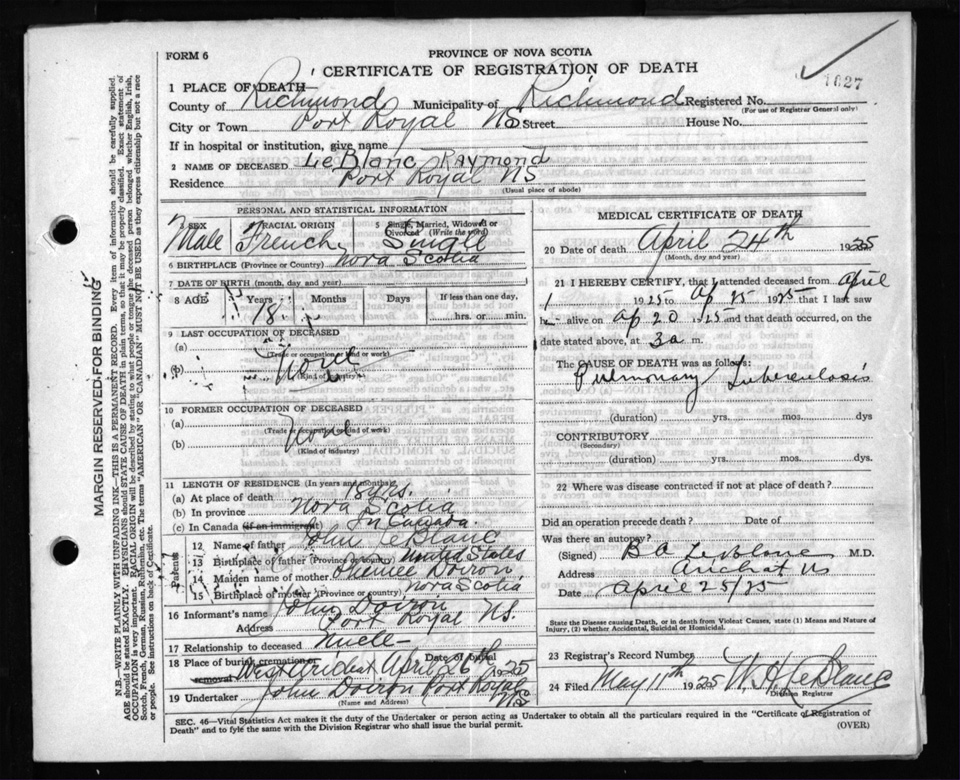 FORM 6
PROVINCE OF NOVA SCOTIA
CERTIFICATE OF REGISTRATION OF DEATH
1627
1 PLACE OF DEATH
County of Richmond Municipality of Richmond Registered No.
(For use of Registrar General only)
City or Town Port Royal NS Street House No.
If in hospital or institution, give name
2 NAME OF DECEASED LeBlanc Raymond
Residence Port Royal NS
(Usual place of abode)
PERSONAL AND STATISTICAL INFORMATION
3 SEX Male
RACIAL ORIGIN French
5 Single, Married, Widowed or Divorced (Write the word) Single
6 BIRTHPLACE (Province or Country) Nova Scotia
7 DATE OF BIRTH (month, day and year)
8 AGE Years Months Days If less than one day,
18 hrs. or min.
9 LAST OCCUPATION OF DECEASED
(a)
(Trade or occupation kind or work)
(b) None
(Kind of industry)
10 FORMER OCCUPATION OF DECEASED
(a)
(Trade or occupation or kind of work)
(b) None
(Kind of industry)
11 LENGTH OF RESIDENCE (In years and months)
(a) At place of death 18 yrs.
(b) In province Nova Scotia
(c) In Canada (if an immigrant) In Canada.
Parents
12 Name of father John LeBlanc
13 Birthplace of father (Province or Country) United States
14 Maiden name of mother Doiron
15 Birthplace of mother (Province or Country) Nova Scotia
16 Informant's name John Doiron
Address Port Royal NS.
17 Relationship to deceased
18 Place of burial cremation or removal West Arichat Date of burial April 26th 1925
19 Undertaker John Doiron Port Royal NS
(Name and Address)
MEDICAL CERTIFICATE OF DEATH
20 Date of death April 24th 1925
(Month, day and year)
21 I HEREBY CERTIFY, that I attended deceased from April
1 1925 to Ap 25 1925 that I last saw
h alive on Ap 20 1925 and that death occurred, on
date stated above, at 3 a m.
The CAUSE OF DEATH was as follows:
Pulmonary Tuberculosis
(duration) yrs. mos. dys
CONTRIBUTORY
(Secondary)
(duration) yrs. mos. dys.
22 Where was disease contracted if not at place of death?
Did an operation precede death? Date of
Was there an autopsy?
(Signed) B A LeBlanc M.D.
Address Arichat NS
Date April 25/25
State the Disease causing Death, or in death from Violent Causes, state (1) Means and Nature of
Injury, (2) whether Accidental, Suicidal or Homicidal.
23 Registrar's Record Number
24 Filed May 11th 1925 W. H. LeBlanc
Division Registrar
SEC. 46—Vital Statistics Act makes it the duty of the Undertaker or person acting as Undertaker to obtain all the particulars required in the "Certificate of Registration of
Death" and to fyle the same with the Division Registrar who shall issue the burial permit.
(OVER)
MARGIN RESERVED FOR BINDING
N.B.—WRITE PLAINLY WITH UNFADING INK—THIS IS A PERMANENT RECORD. Every item of information should be carefully supplied.
AGE should be stated EXACTLY. PHYSICIANS should STATE CAUSE OF DEATH in plain terms, so that it may be properly classified. Exact statement of
OCCUPATION is very important. RACIAL ORIGIN will be described by stating to what people or tongue the deceased person belonged whether English, Irish,
Scotch, French, German, Russian, Ruthenian, etc. The terms "AMERICAN" OR "CANADIAN" MUST NOT BE USED as they express citizenship but not a race
or people. See instructions on back of Certificate.